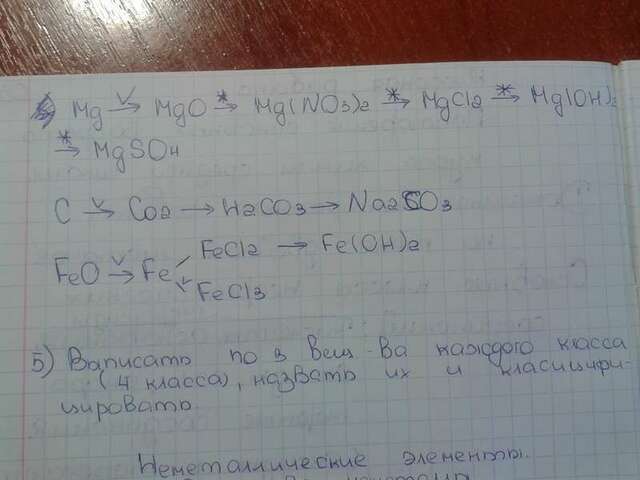 Mg → MgO → Mg(NO3)2 → MgCl2 → Mg(OH)2
→ MgSO4
C → CO2 → H2CO3 → Na2CO3
FeCl2 → Fe(OH)2
FeO → Fe
FeCl3
5) Записать по 3 вещ-ва каждого класса
(4 класса), назвать их и класицифи-
цировать.
Неметаллические элементы.